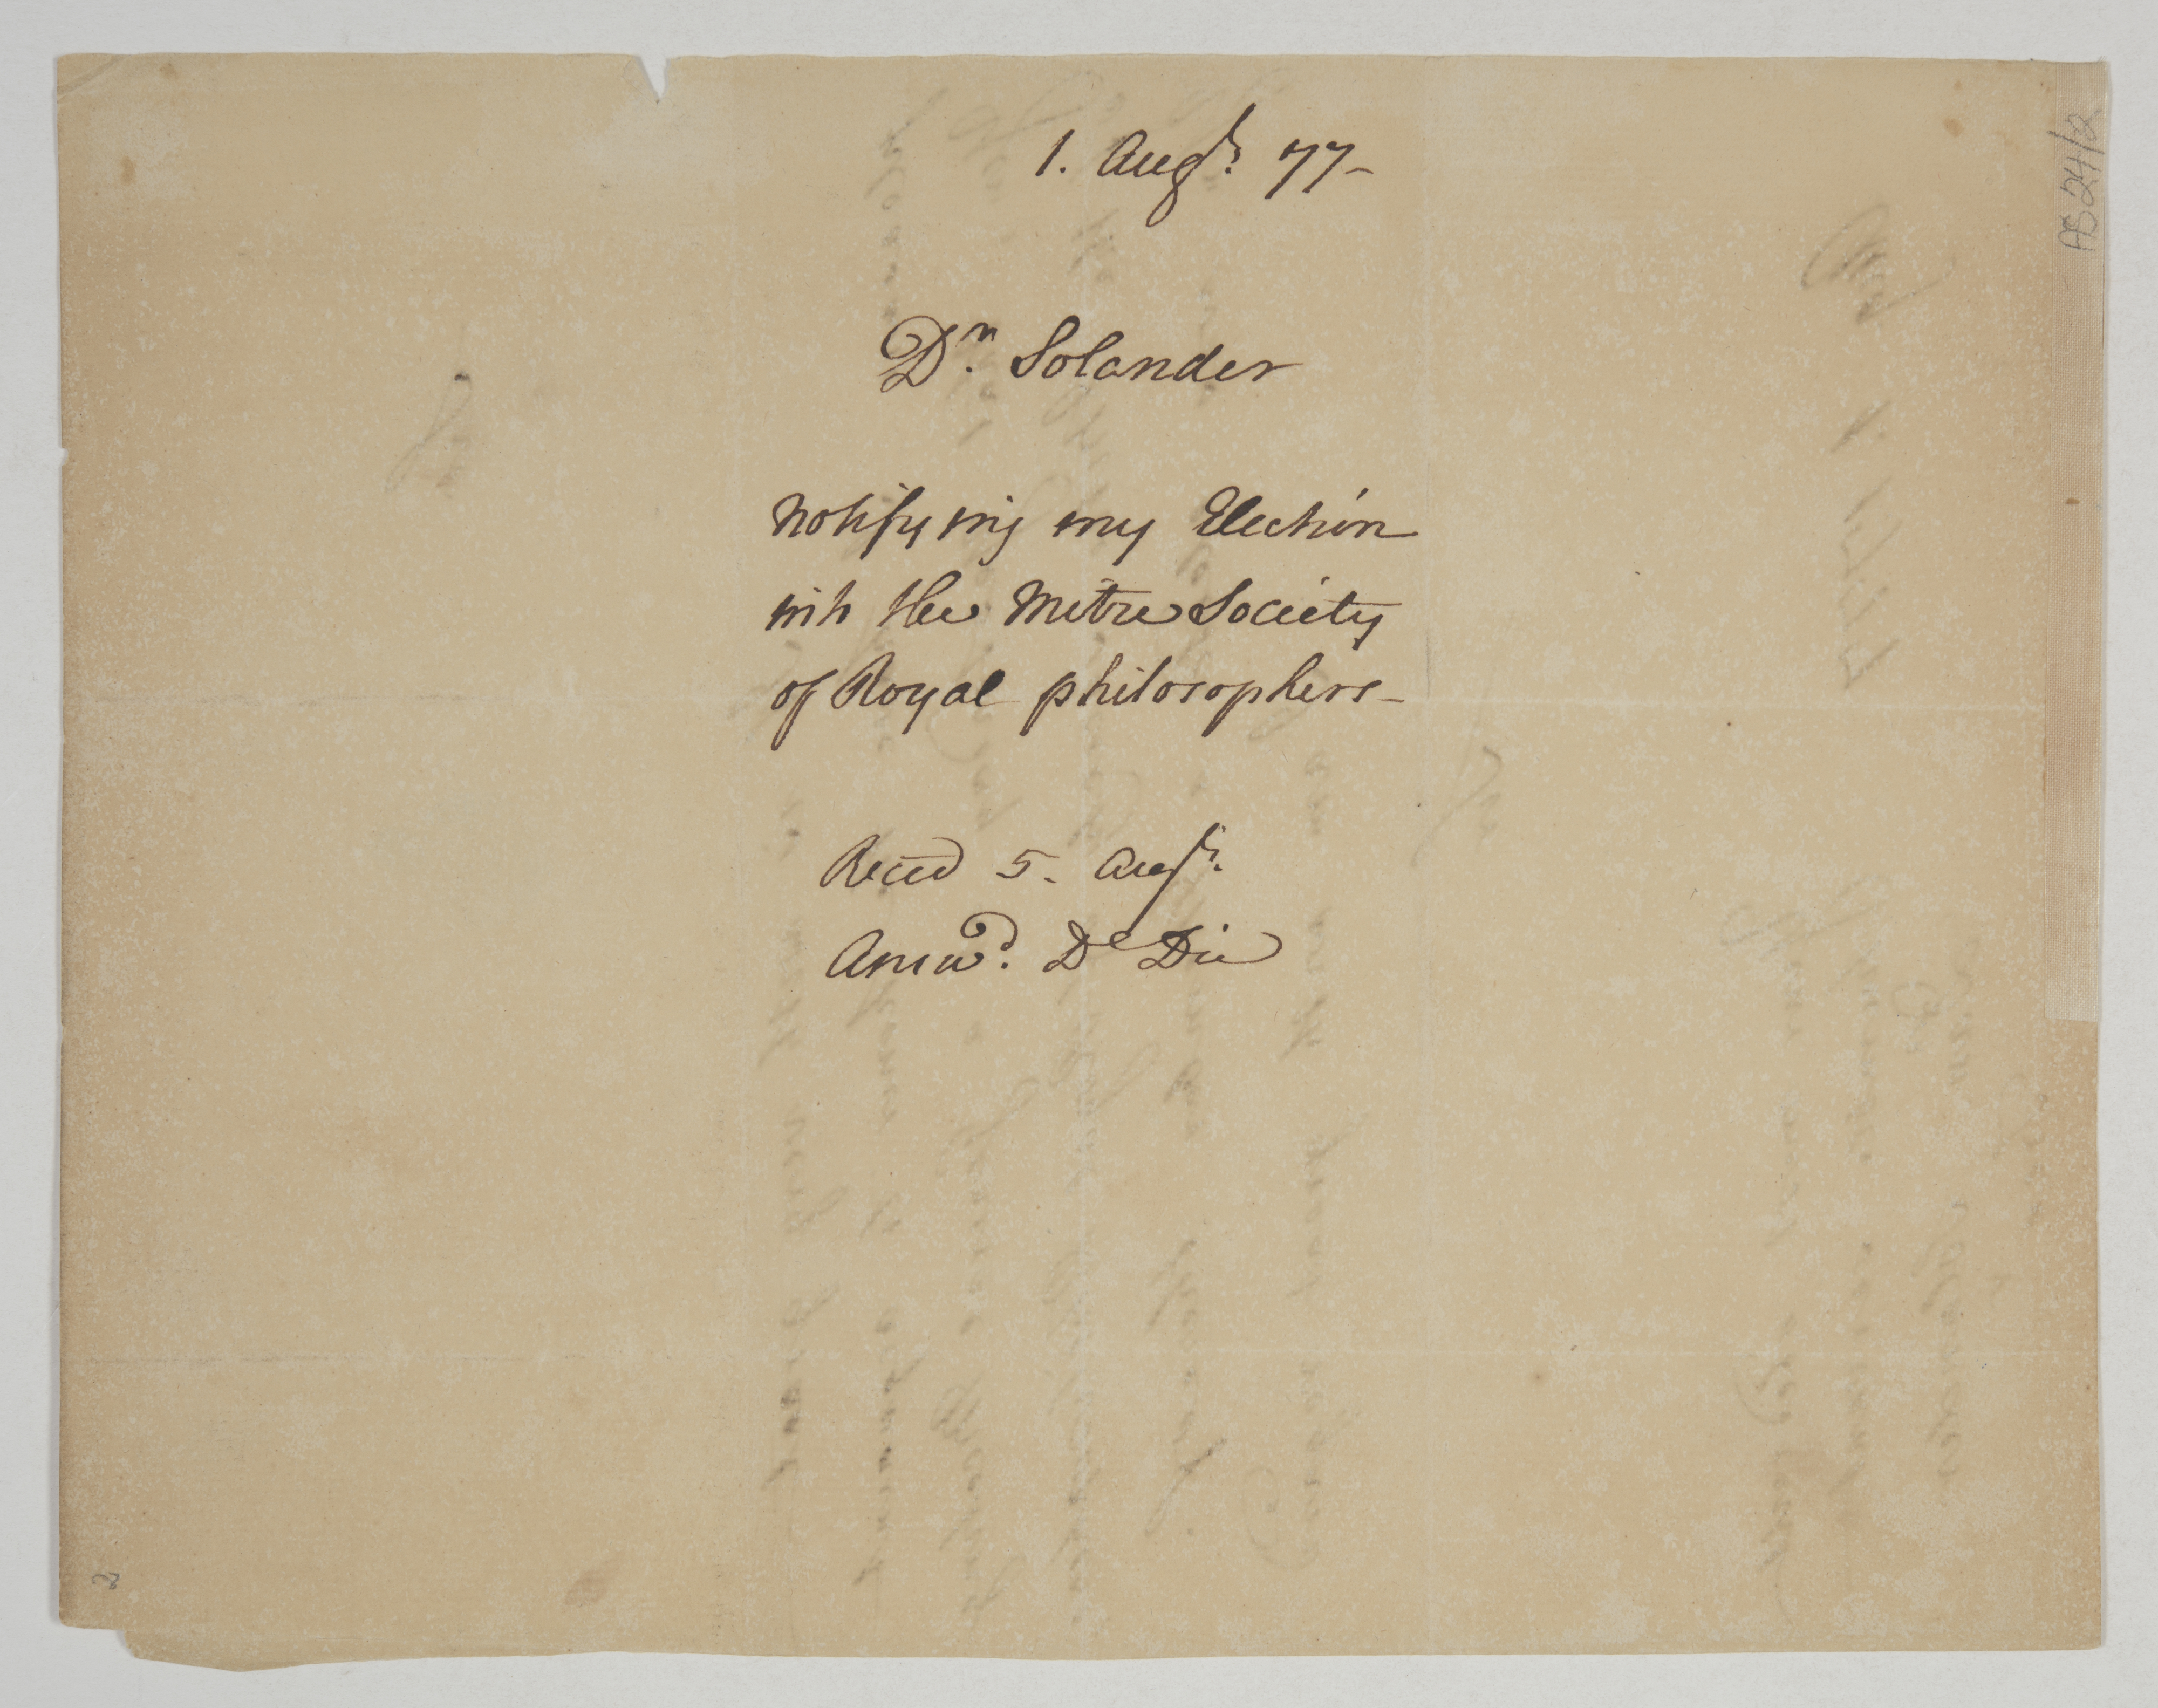 1. Augt. 77-
Dr. Solander
Notifying my Election
into the Mitre Society
of Royal philosophers-
Recd 5. Augt.
Answd. De Die
AS 24/2
2